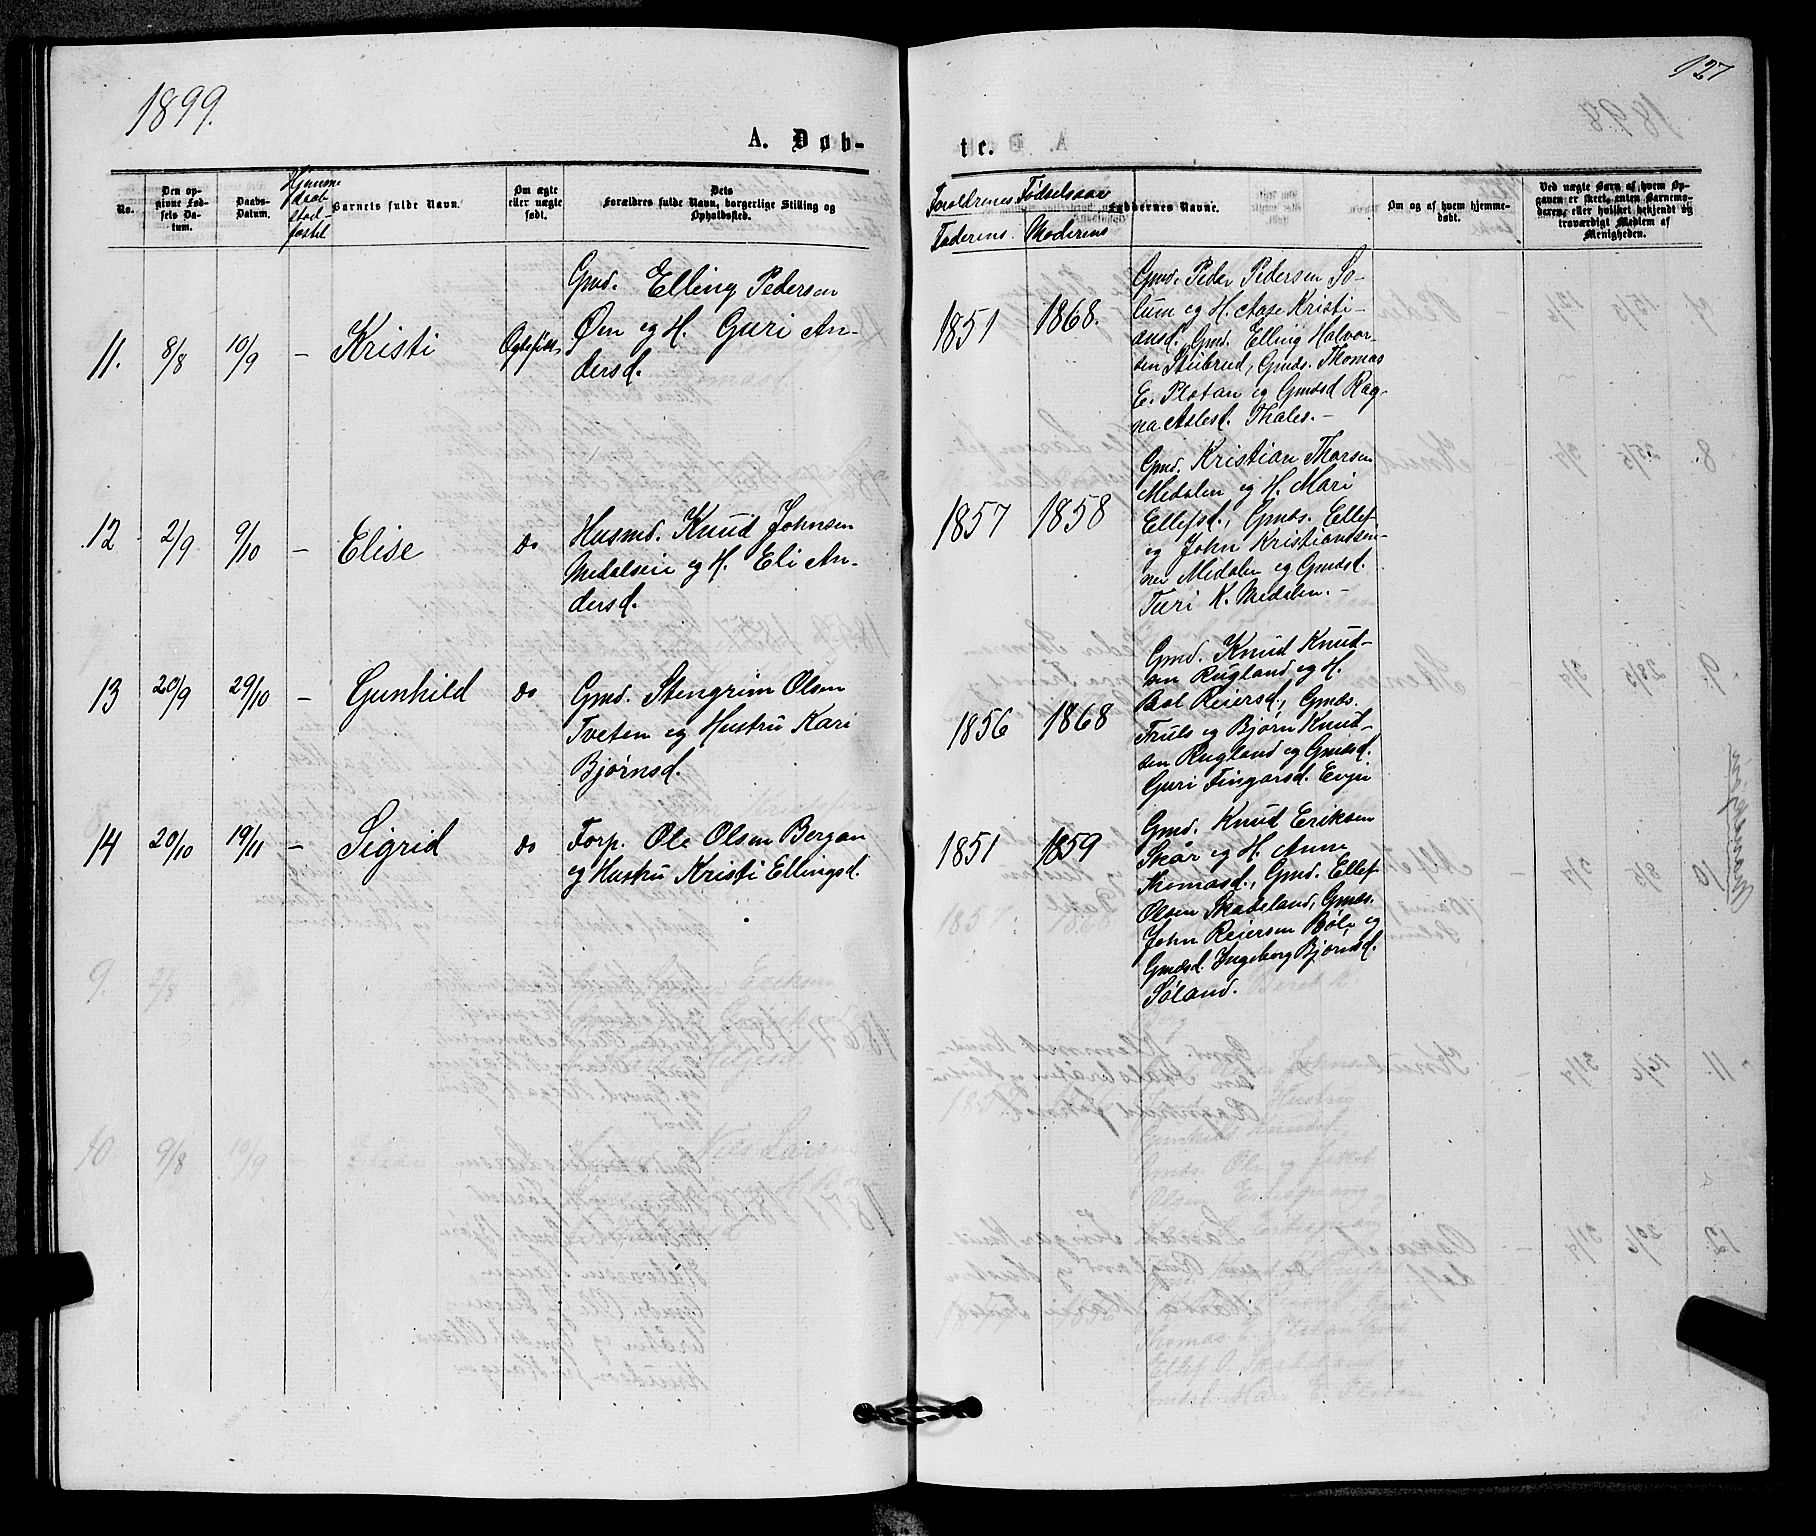 1899.
127
A. Døb-
te.
No.
Den op-
givne Fød-
sels Da-
tum.
Daabs-
Datum.
Hjemme
daab
stad-
fæstet
Barnets fulde Navn.
Om ægte
eller uægte
født.
Dets
Forældres fulde Navn, borgerlige Stilling og
Opholdssted.
Forældrenes Fødselsaar
Faderens Moderens
Faddernes Navne.
Om og af hvem hjemme-
døbt.
Ved uægte Børn af hvem Op-
gaven er skeet, enten Barnemo-
deren, eller hvilket bekjendt og
troværdigt Medlem af
Menigheden.
11. 8/8 10/9 – Kristi
Gmd. Elling Pedersen
Øen og H. Guri An-
dersd.
1851 1868.
Gmd. Peder Pedersen So-
lum og H. Aase Kristi-
ansd., Gmd. Elling Halvor-
sen Stubrud, Gmds. Thomas
E. Plotan og Gmdsd Rag-
na Aslesd. Thales. –
12 2/9 9/10 – Elise do
Husmd. Knud Johnsen
Medalseie og H. Eli An-
dersd.
1857 1858
Gmd. Kristian Thorsen
Medalen og H. Mari
Ellefsd., Gmds. Ellef
og John Kristiandsen-
ner Medalen og Gmdsd.
Turi K. Medalen. –
13 20/9 29/10 – Gunhild do
Gmd. Stengrim Olsen
Tveten og Hustru Kari
Bjørnsd.
1856 1868
Gmd. Knud Knud-
sen Rugland og H.
Bol Reiersd., Gmds.
Truls og Bjørn Knud-
sen Rugland og Gmdsd.
Guri Fingarsd. Evju
14 20/10 19/11 – Sigrid do
Forp. Ole Olsen Bergan
og Hustru Kristi Ellingsd.
1851 1859
Gmd. Knud Eriksen
Skår og H. Anne
Thomasd., Gmd. Ellef
Olsen Skadeland, Gmds.
John Reiersen Bøle og
Gmdsd. Ingeborg Bjørnsd.
Søland.